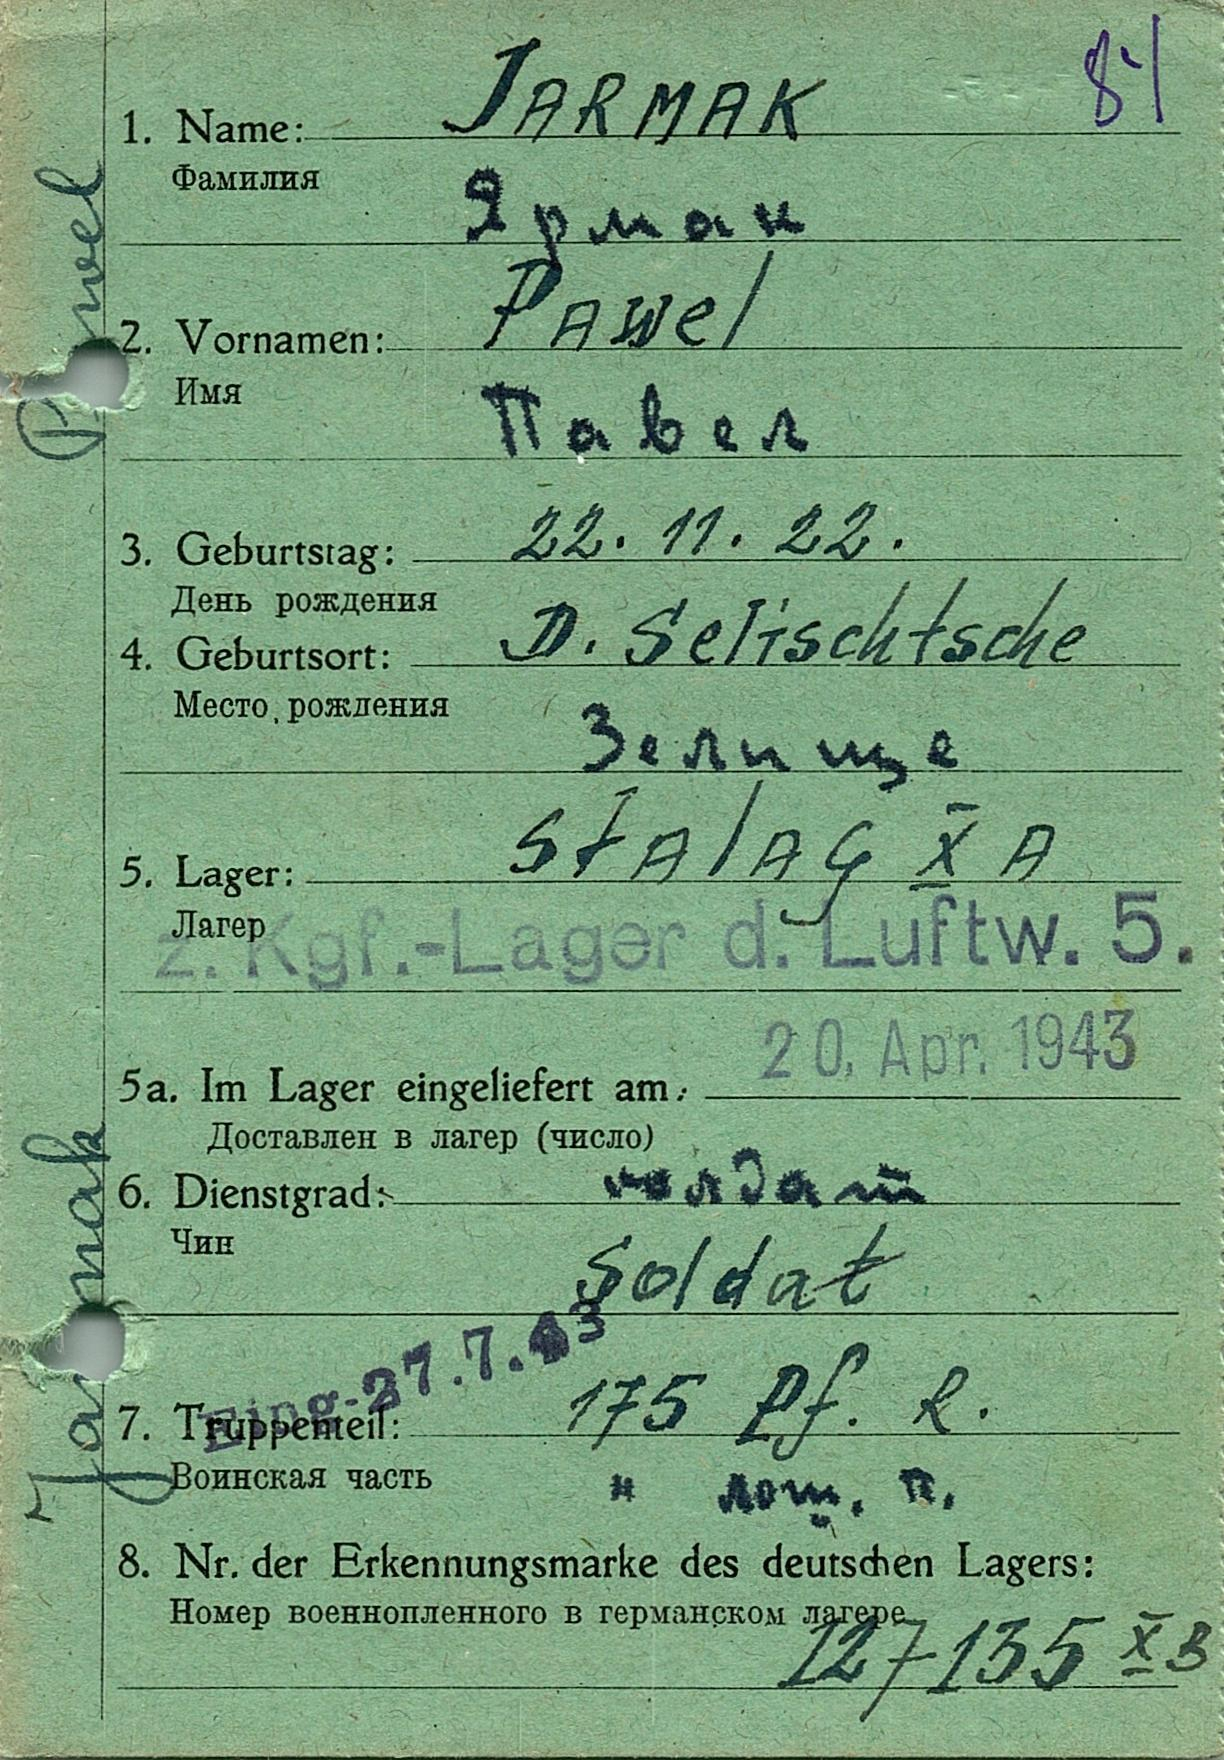 84
1. Name: JARMAK
Фамилия
Ярмак
2. Vornamen: Pawel
Имя
Павел
3. Geburtstag: 22. 11. 22.
День рождения
4. Geburtsort: D. Selischtsche
Место рождения
Зелище
5. Lager: Stalag X A
Лагер
z. Kgf.-Lager d. Luftw. 5.
20. Apr. 1943
5a. Im Lager eingeliefert am:
Доставлен в лагер (число)
6. Dienstgrad: солдат
Чин
Soldat
Eing. 27.7.43
7. Truppenteil: 175 Pf. R.
Воинская часть
" лош. п.
8. Nr. der Erkennungsmarke des deutschen Lagers:
Номер военнопленного в германском лагере
127135 X B
Jarmak Pawel